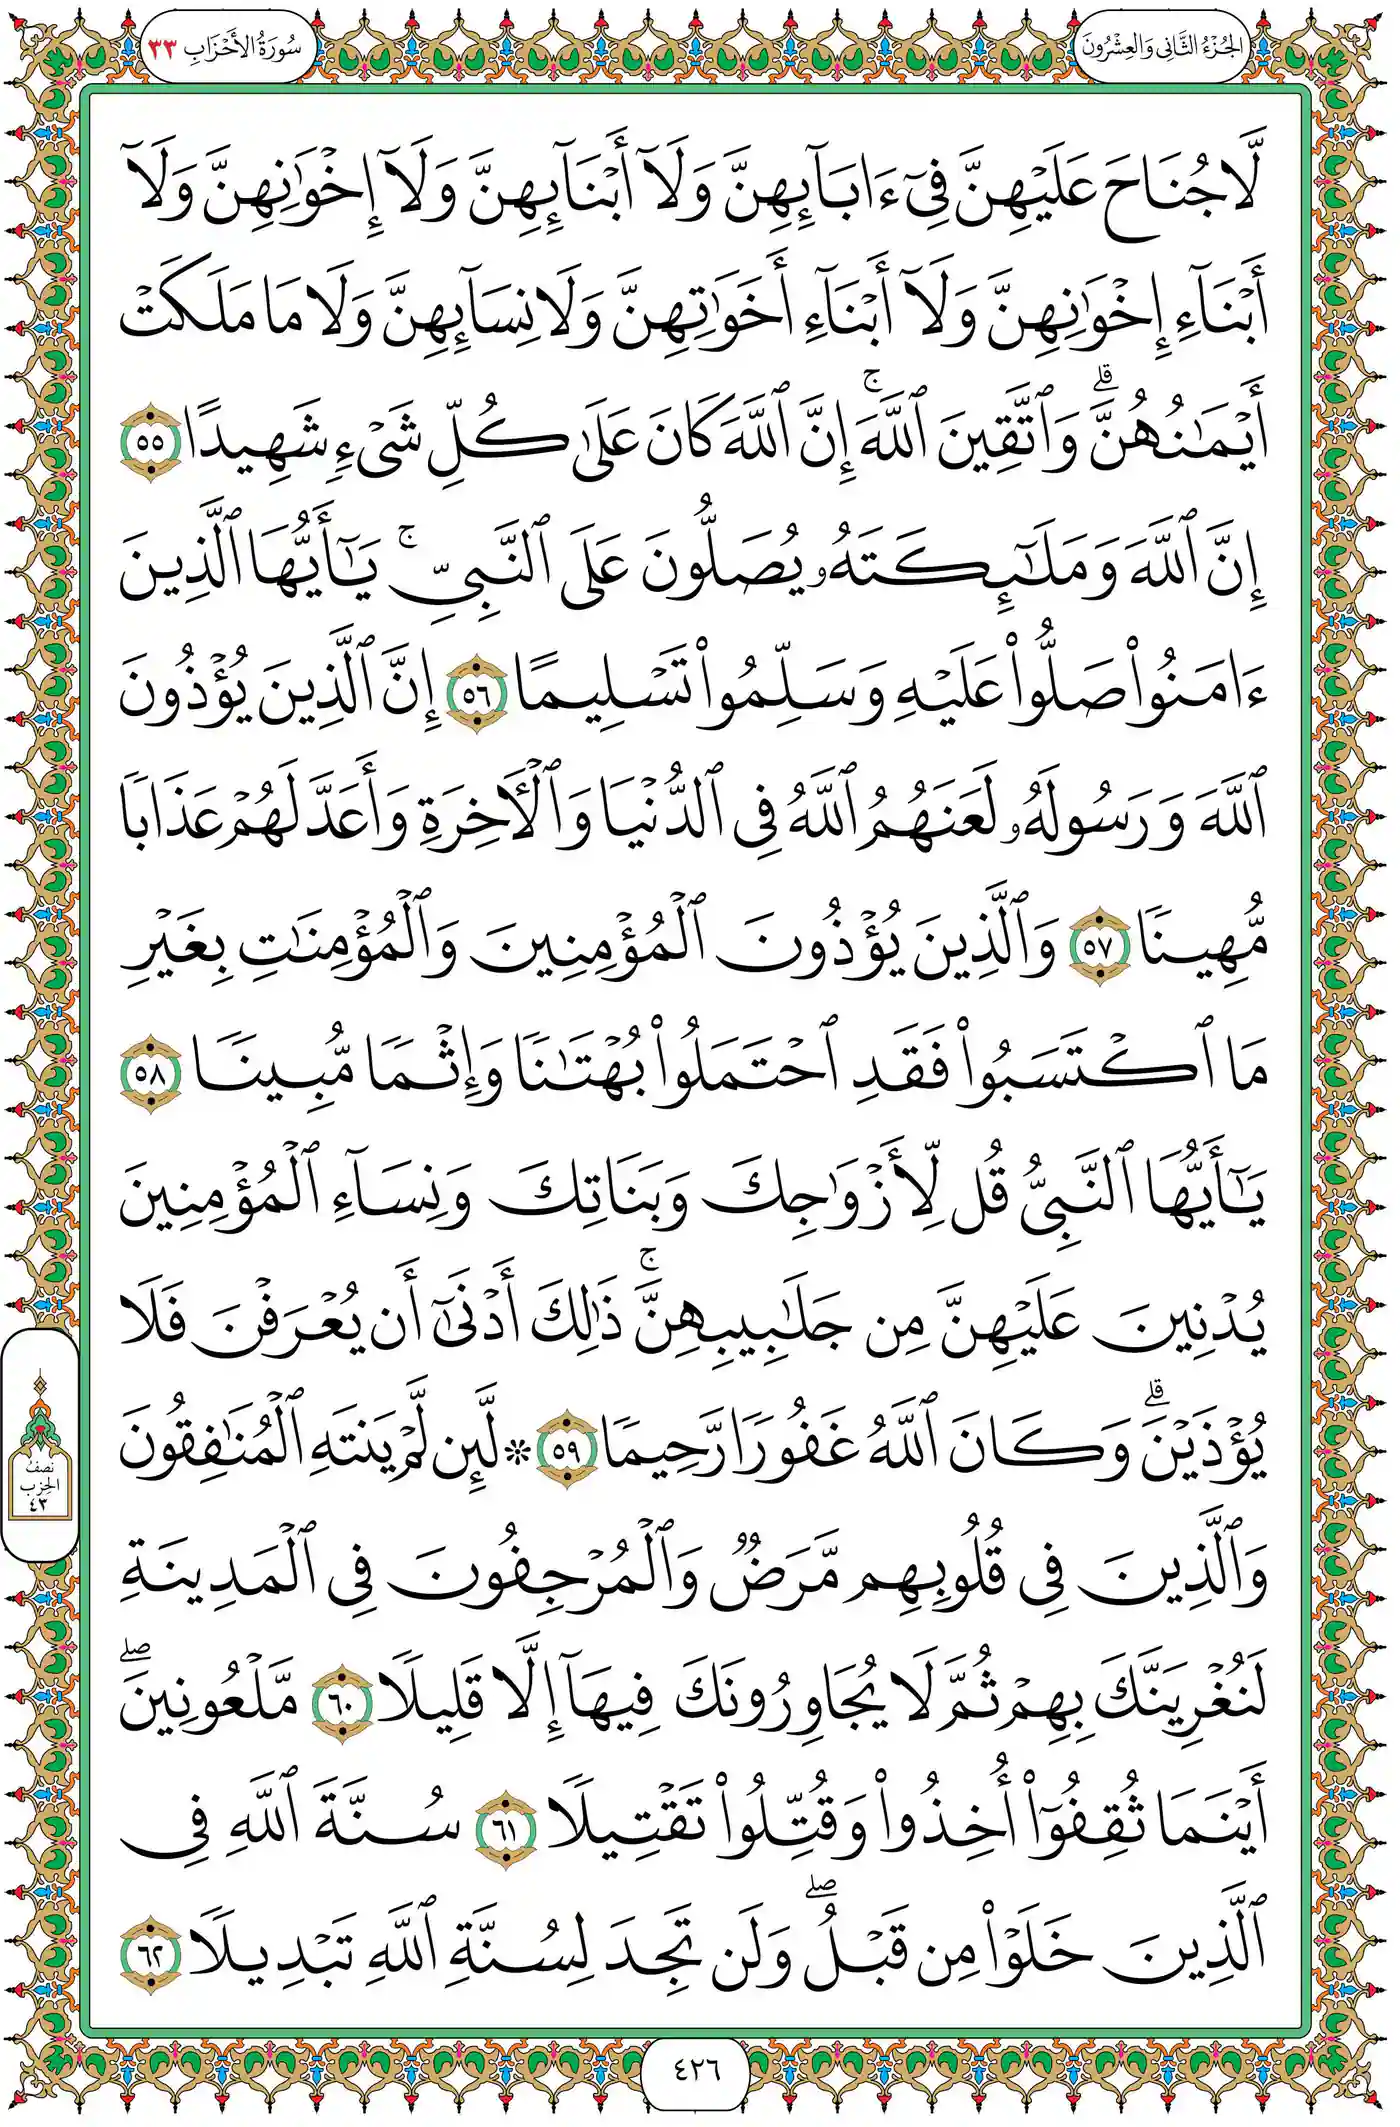 الجُزْءُ الثَّانِي وَالعِشْرُونَ
سُورَةُ الأَحْزَابِ ٣٣
لَّا جُنَاحَ عَلَيْهِنَّ فِىٓ ءَابَآئِهِنَّ وَلَآ أَبْنَآئِهِنَّ وَلَآ إِخْوَٰنِهِنَّ وَلَآ
أَبْنَآءِ إِخْوَٰنِهِنَّ وَلَآ أَبْنَآءِ أَخَوَٰتِهِنَّ وَلَا نِسَآئِهِنَّ وَلَا مَا مَلَكَتْ
أَيْمَٰنُهُنَّۗ وَٱتَّقِينَ ٱللَّهَۚ إِنَّ ٱللَّهَ كَانَ عَلَىٰ كُلِّ شَىْءٍ شَهِيدًا ٥٥
إِنَّ ٱللَّهَ وَمَلَٰٓئِكَتَهُۥ يُصَلُّونَ عَلَى ٱلنَّبِىِّۚ يَٰٓأَيُّهَا ٱلَّذِينَ
ءَامَنُوا۟ صَلُّوا۟ عَلَيْهِ وَسَلِّمُوا۟ تَسْلِيمًا ٥٦ إِنَّ ٱلَّذِينَ يُؤْذُونَ
ٱللَّهَ وَرَسُولَهُۥ لَعَنَهُمُ ٱللَّهُ فِى ٱلدُّنْيَا وَٱلْءَاخِرَةِ وَأَعَدَّ لَهُمْ عَذَابًا
مُّهِينًا ٥٧ وَٱلَّذِينَ يُؤْذُونَ ٱلْمُؤْمِنِينَ وَٱلْمُؤْمِنَٰتِ بِغَيْرِ
مَا ٱكْتَسَبُوا۟ فَقَدِ ٱحْتَمَلُوا۟ بُهْتَٰنًا وَإِثْمًا مُّبِينًا ٥٨
يَٰٓأَيُّهَا ٱلنَّبِىُّ قُل لِّأَزْوَٰجِكَ وَبَنَاتِكَ وَنِسَآءِ ٱلْمُؤْمِنِينَ
يُدْنِينَ عَلَيْهِنَّ مِن جَلَٰبِيبِهِنَّۚ ذَٰلِكَ أَدْنَىٰٓ أَن يُعْرَفْنَ فَلَا
يُؤْذَيْنَۗ وَكَانَ ٱللَّهُ غَفُورًا رَّحِيمًا ٥٩ ۞ لَّئِن لَّمْ يَنتَهِ ٱلْمُنَٰفِقُونَ
وَٱلَّذِينَ فِى قُلُوبِهِم مَّرَضٌ وَٱلْمُرْجِفُونَ فِى ٱلْمَدِينَةِ
لَنُغْرِيَنَّكَ بِهِمْ ثُمَّ لَا يُجَاوِرُونَكَ فِيهَآ إِلَّا قَلِيلًا ٦٠ مَّلْعُونِينَۖ
أَيْنَمَا ثُقِفُوٓا۟ أُخِذُوا۟ وَقُتِّلُوا۟ تَقْتِيلًا ٦١ سُنَّةَ ٱللَّهِ فِى
ٱلَّذِينَ خَلَوْا۟ مِن قَبْلُۖ وَلَن تَجِدَ لِسُنَّةِ ٱللَّهِ تَبْدِيلًا ٦٢
نصْفُ
الحِزْب
٤٣
٤٢٦